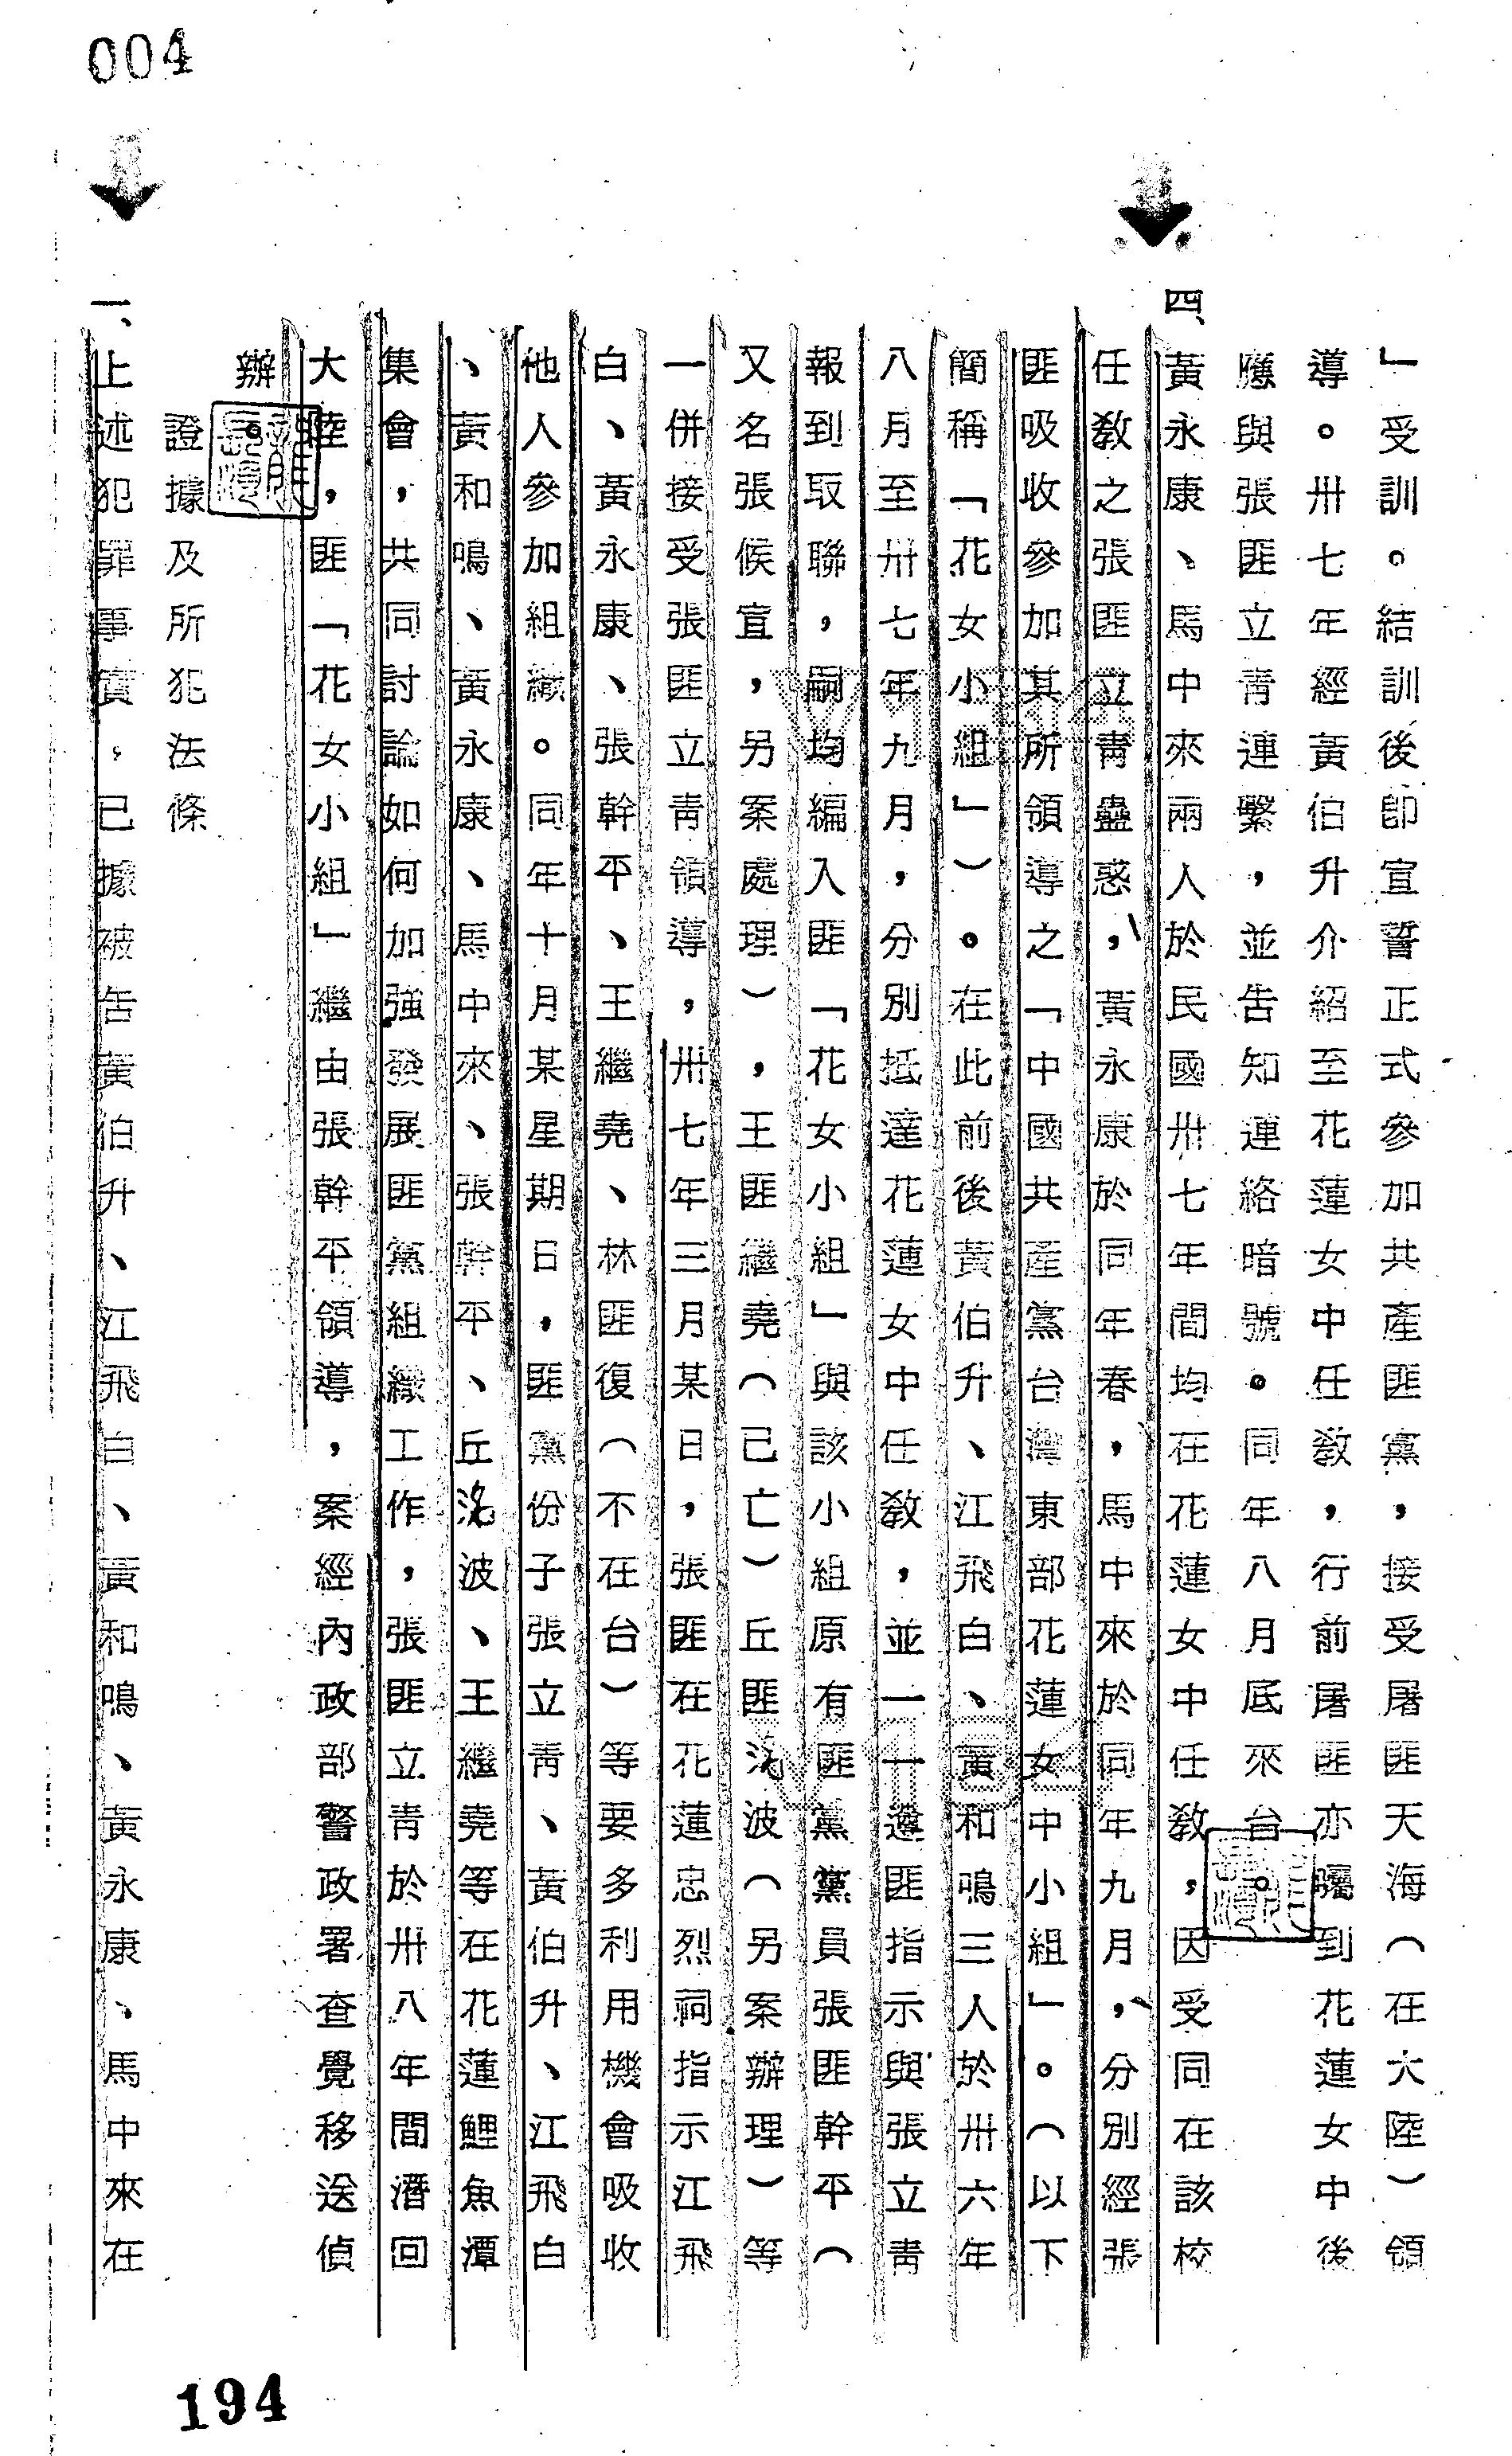 004
」受訓。結訓後卽宣誓正式參加共產匪黨，接受屠匪天海（在大陸）領
導。卅七年經黃伯升介紹至花蓮女中任敎，行前屠匪亦囑到花蓮女中後
應與張匪立靑連繫，並告知連絡暗號。同年八月底來台。
四、黃永康、馬中來兩人於民國卅七年間均在花蓮女中任敎，因受同在該校
任敎之張匪立靑蠱惑，黃永康於同年春，馬中來於同年九月，分別經張
匪吸收參加其所領導之「中國共產黨台灣東部花蓮女中小組」。（以下
簡稱「花女小組」）。在此前後黃伯升、江飛白、黃和鳴三人於卅六年
八月至卅七年九月，分別抵達花蓮女中任敎，並一一遵匪指示與張立靑
報到取聯，嗣均編入匪「花女小組」與該小組原有匪黨黨員張匪幹平（
又名張候宣，另案處理），王匪繼堯（已亡）丘匪洺波（另案辦理）等
一併接受張匪立靑領導，卅七年三月某日，張匪在花蓮忠烈祠指示江飛
白、黃永康、張幹平、王繼堯、林匪復（不在台）等要多利用機會吸收
他人參加組織。同年十月某星期日，匪黨份子張立靑、黃伯升、江飛白
、黃和鳴、黃永康、馬中來、張幹平、丘洺波、王繼堯等在花蓮鯉魚潭
集會，共同討論如何加強發展匪黨組織工作，張匪立靑於卅八年間潛回
大陸，匪「花女小組」繼由張幹平領導，案經內政部警政署查覺移送偵
辦。
證據及所犯法條
一、上述犯罪事實，已據被告黃伯升、江飛白、黃和鳴、黃永康、馬中來在
194